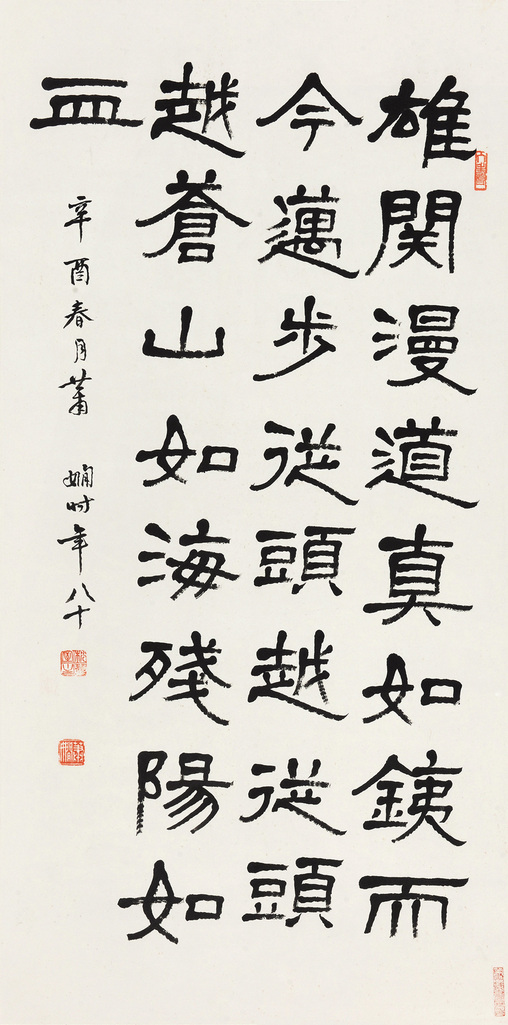 雄関漫道真如鐵而
今邁步從頭越從頭
越蒼山如海殘陽如
血
辛酉春月蕭嫻时年八十